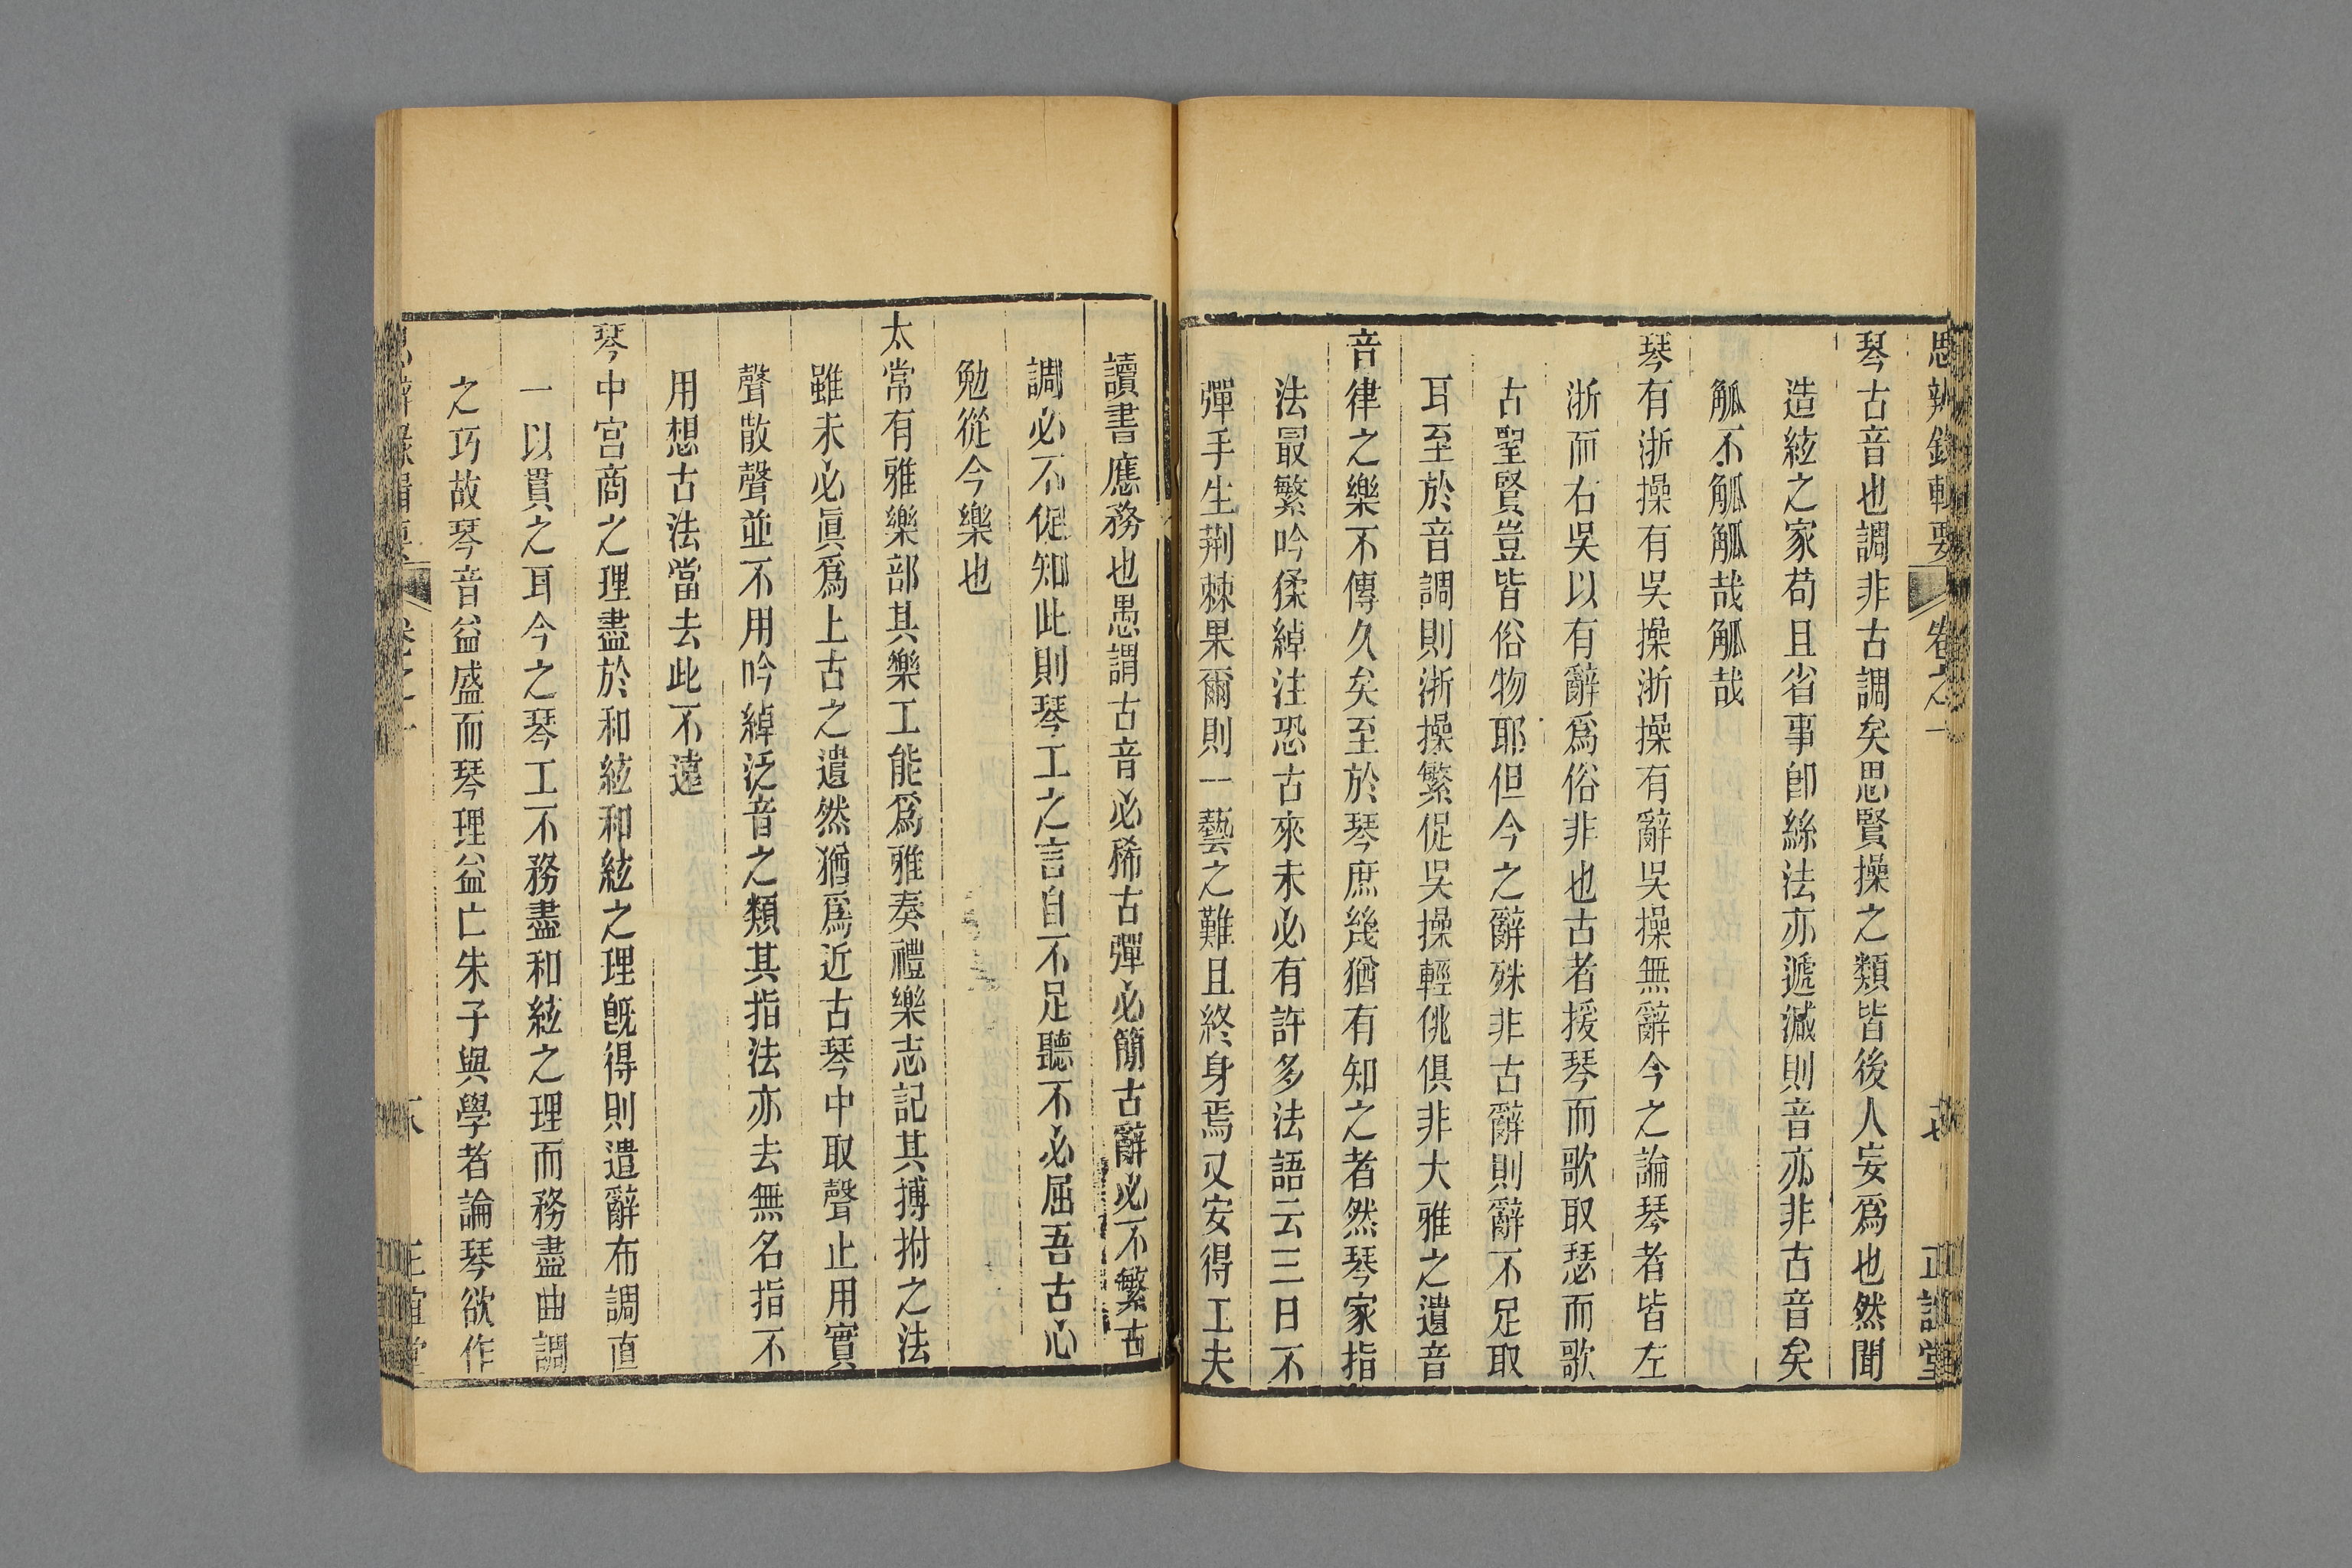 思辨錄輯要 卷之 正誼堂
琴古音也調非古調矣思賢操之類皆後人妄爲也然聞
造絃之家苟且省事卽絲法亦遞減則音亦非古音矣
觚不觚觚哉觚哉
琴有浙操有吳操浙操有辭吳操無辭今之論琴者皆左
浙而右吳以有辭爲俗非也古者援琴而歌取瑟而歌
古聖賢豈皆俗物耶但今之辭殊非古辭則辭不足取
耳至於音調則浙操繁促吳操輕佻俱非大雅之遺音
音律之樂不傳久矣至於琴庶幾猶有知之者然琴家指
法最繁吟猱綽注恐古來未必有許多法語云三日不
彈手生荆棘果爾則一藝之難且終身焉又安得工夫
讀書應務也愚謂古音必稀古彈必簡古辭必不繁古
調必不促知此則琴工之言自不足聽不必屈吾古心
勉從今樂也
太常有雅樂部其樂工能爲雅奏禮樂志記其搏拊之法
雖未必眞爲上古之遺然猶爲近古琴中取聲止用實
聲散聲並不用吟綽泛音之類其指法亦去無名指不
用想古法當去此不遠
琴中宮商之理盡於和絃和絃之理旣得則遣辭布調直
一以貫之耳今之琴工不務盡和絃之理而務盡曲調
之巧故琴音益盛而琴理益亡朱子與學者論琴欲作